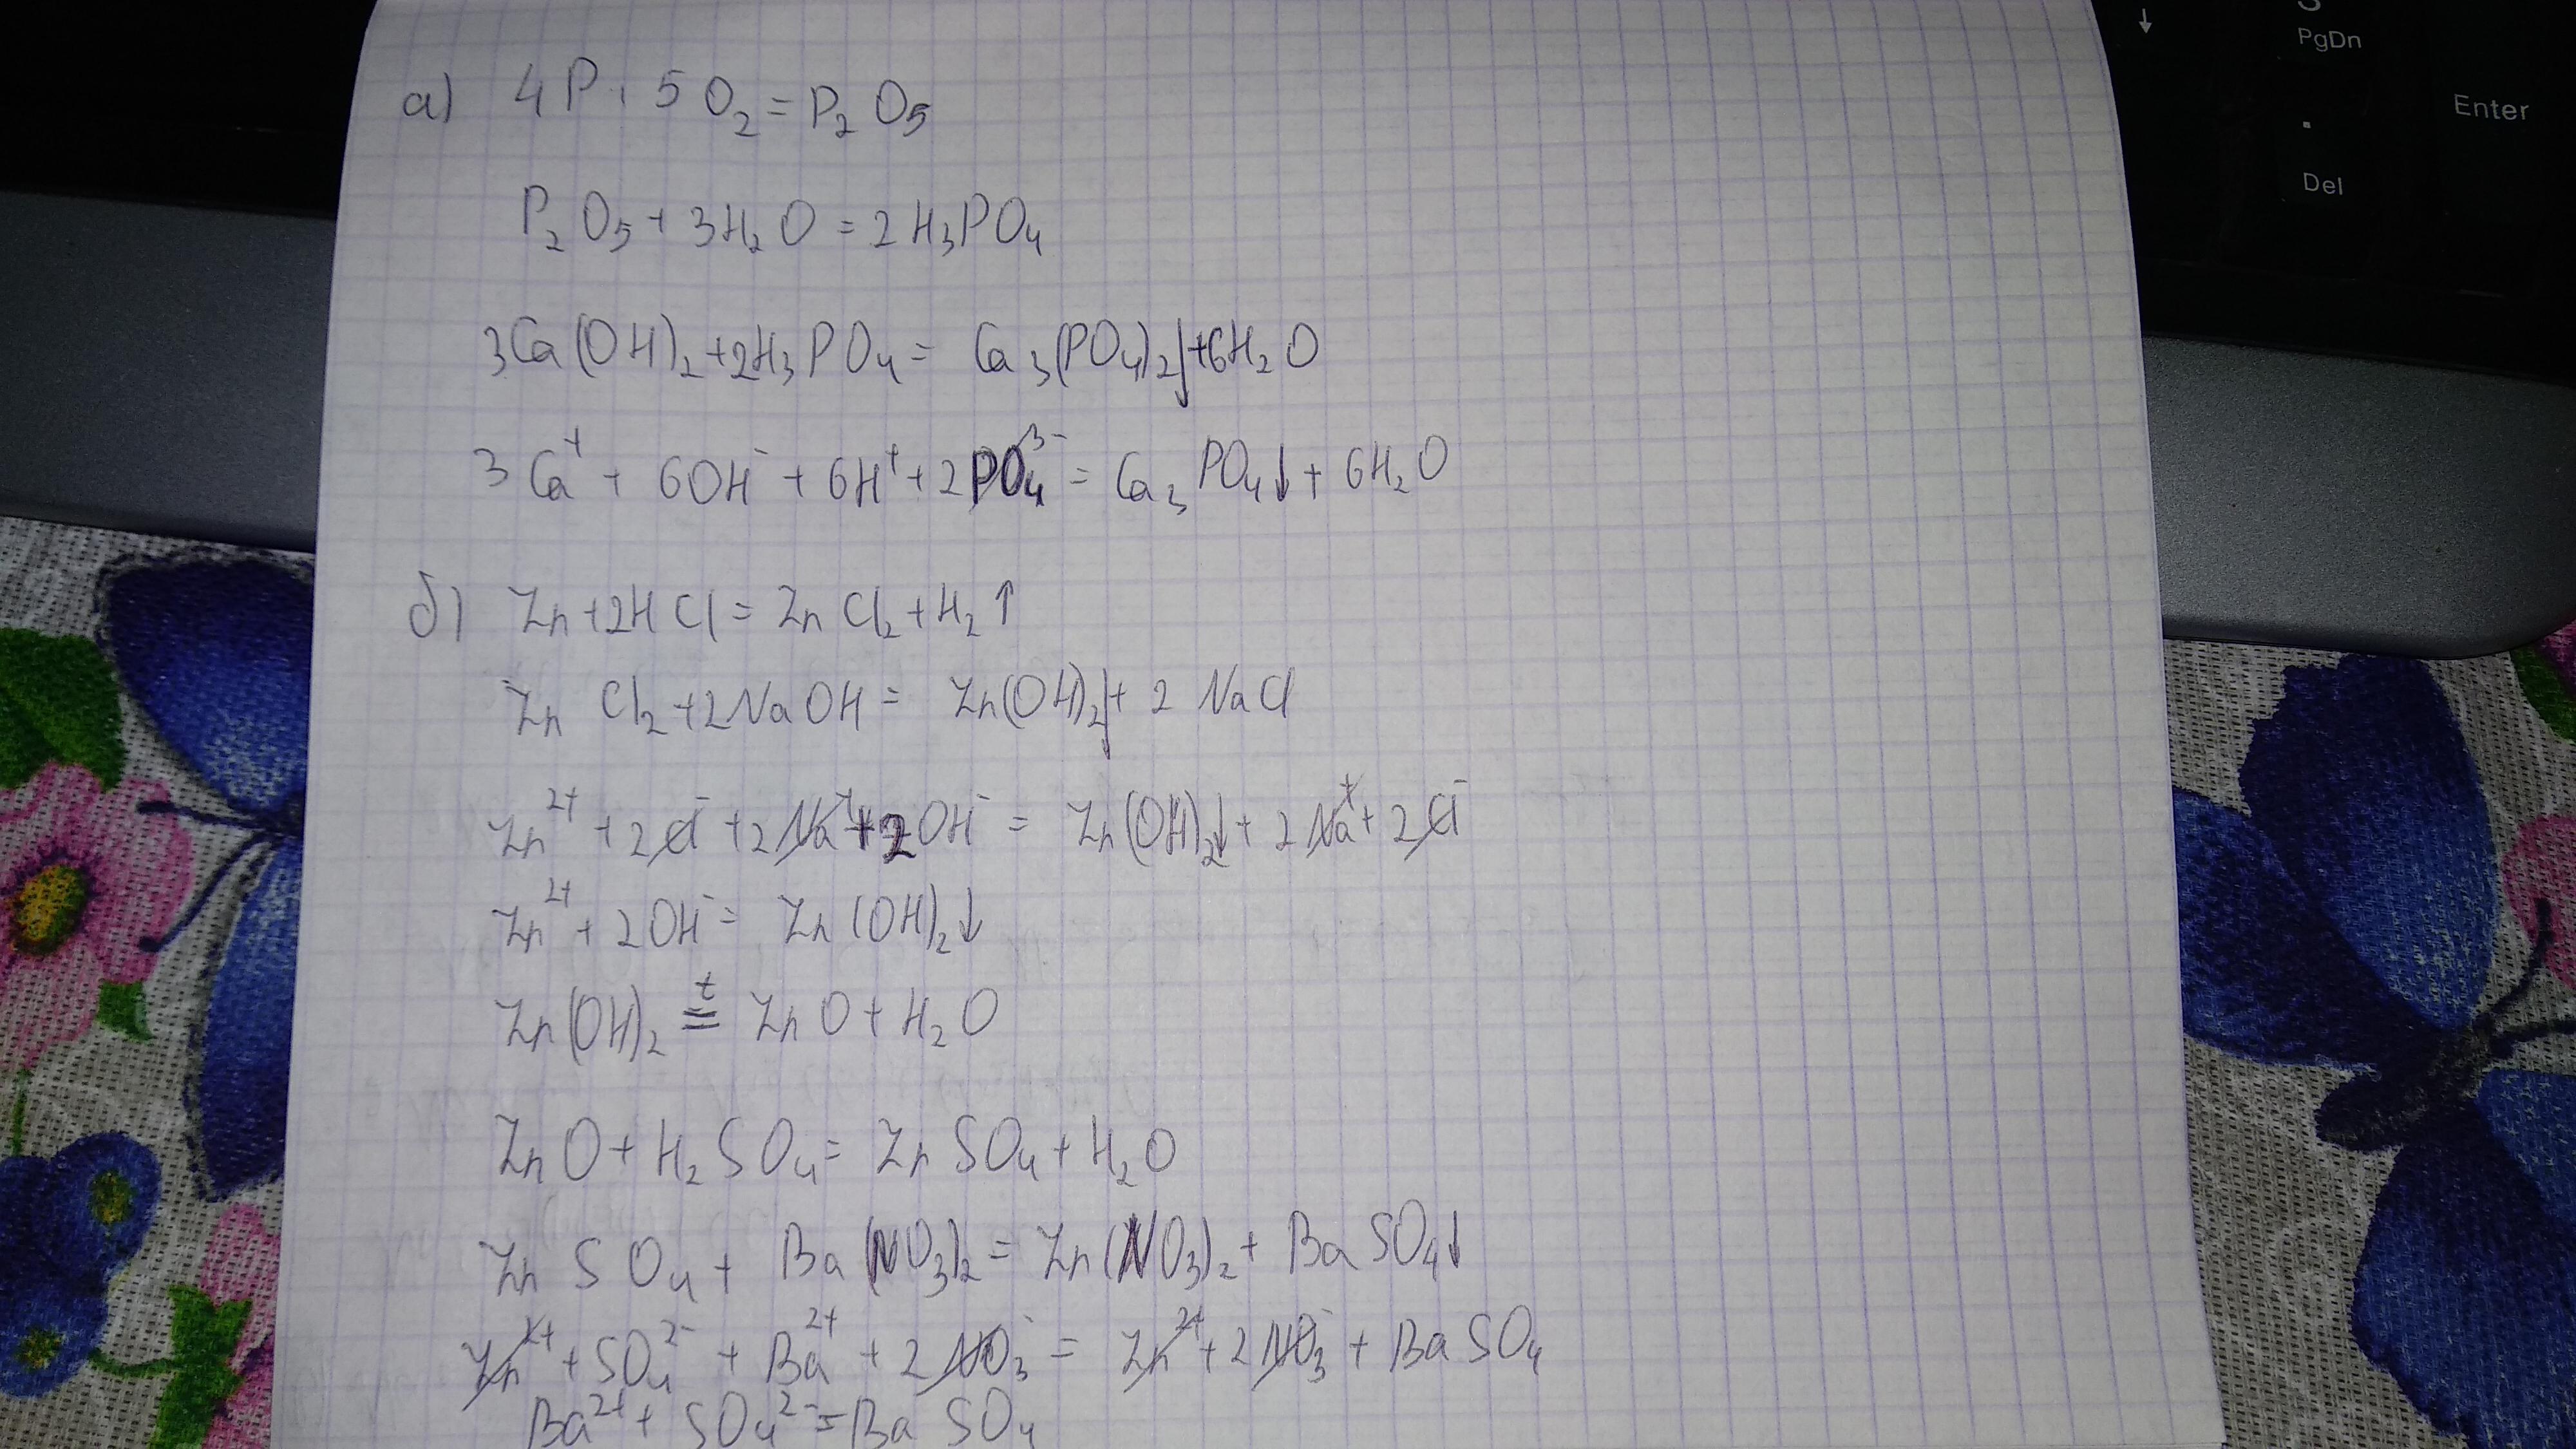 PgDn
Enter
Del
а) 4P + 5O₂ = P₂O₅
P₂O₅ + 3H₂O = 2H₃PO₄
3Ca(OH)₂ + 2H₃PO₄ = Ca₃(PO₄)₂↓ + 6H₂O
3Ca⁺ + 6OH⁻ + 6H⁺ + 2PO₄³⁻ = Ca₃PO₄↓ + 6H₂O
б) Zn + 2HCl = ZnCl₂ + H₂↑
ZnCl₂ + 2NaOH = Zn(OH)₂↓ + 2NaCl
Zn²⁺ + 2Cl⁻ + 2Na⁺ + 2OH⁻ = Zn(OH)₂↓ + 2Na⁺ + 2Cl⁻
Zn²⁺ + 2OH⁻ = Zn(OH)₂↓
Zn(OH)₂ =ᵗ ZnO + H₂O
ZnO + H₂SO₄ = ZnSO₄ + H₂O
ZnSO₄ + Ba(NO₃)₂ = Zn(NO₃)₂ + BaSO₄↓
Zn²⁺ + SO₄²⁻ + Ba²⁺ + 2NO₃⁻ = Zn²⁺ + 2NO₃⁻ + BaSO₄
Ba²⁺ + SO₄²⁻ = BaSO₄